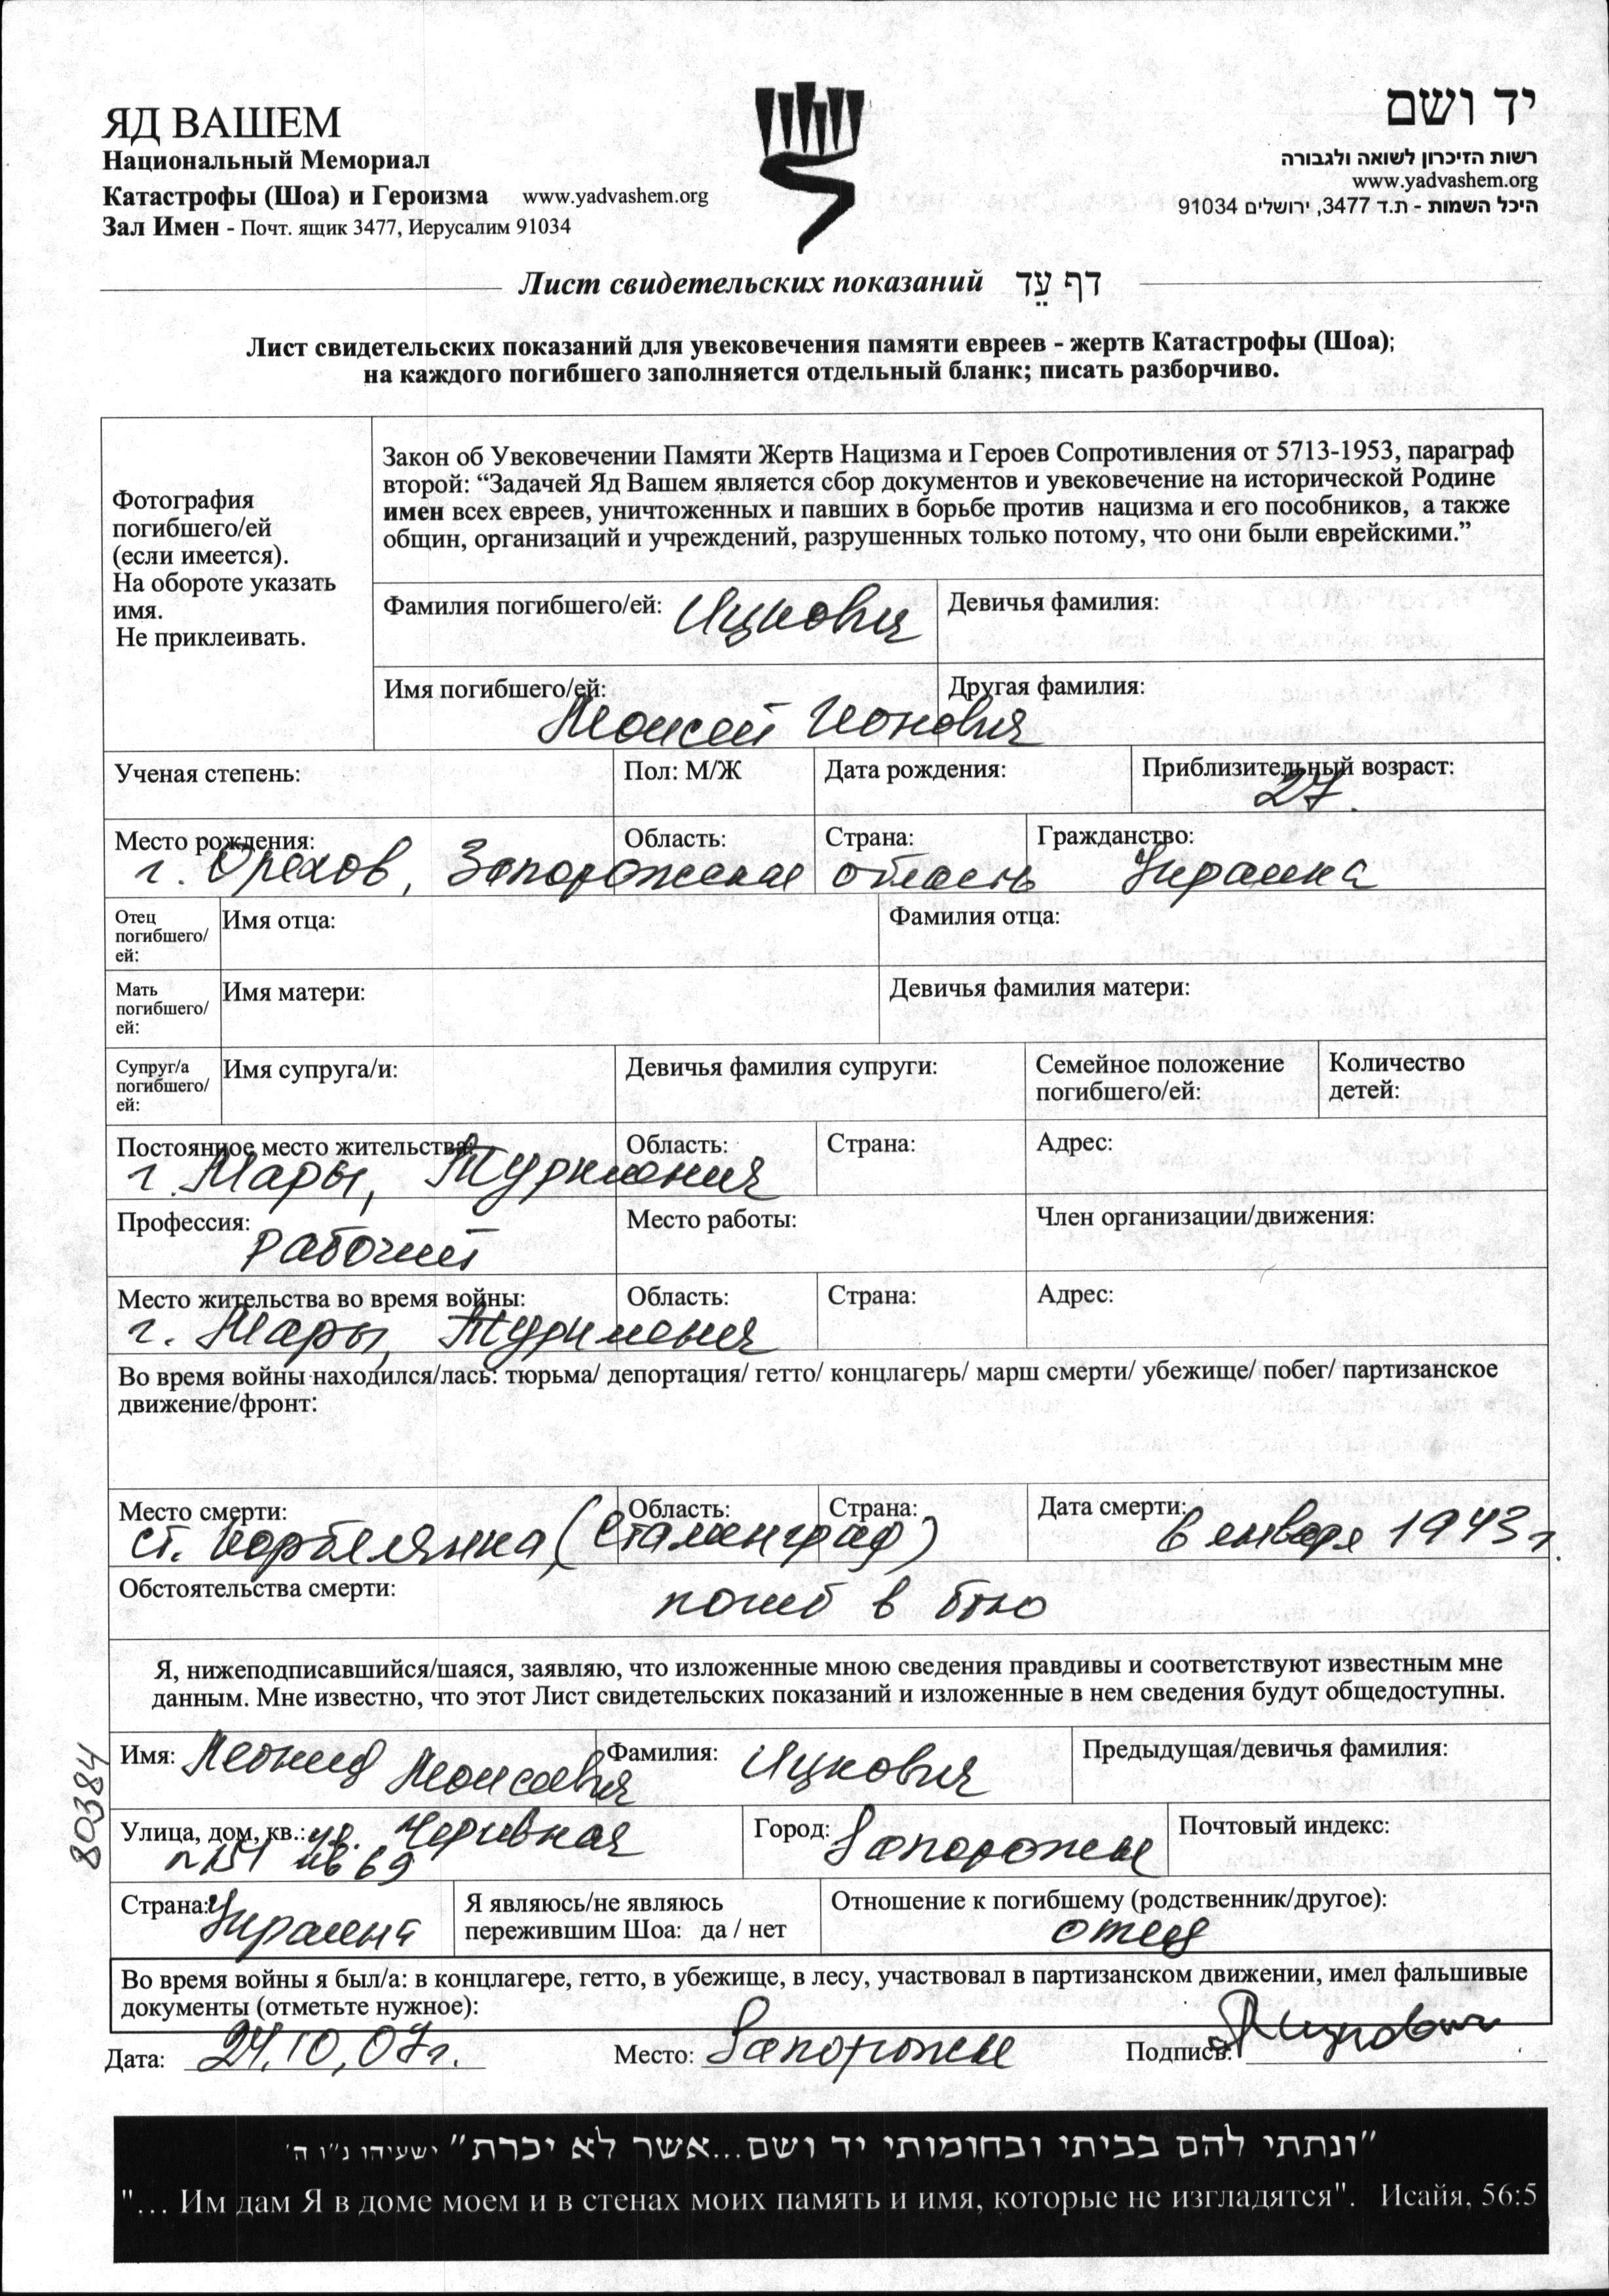 ЯД ВАШЕМ
Национальный Мемориал
Катастрофы (Шоа) и Героизма www.yadvashem.org
Зал Имен - Почт. ящик 3477, Иерусалим 91034
יד ושם
רשות הזיכרון לשואה ולגבורה
www.yadvashem.org
היכל השמות - ת.ד 3477, ירושלים 91034
Лист свидетельских показаний דף עֵד
Лист свидетельских показаний для увековечения памяти евреев - жертв Катастрофы (Шоа);
на каждого погибшего заполняется отдельный бланк; писать разборчиво.
Фотография
погибшего/ей
(если имеется).
На обороте указать
имя.
Не приклеивать.
Закон об Увековечении Памяти Жертв Нацизма и Героев Сопротивления от 5713-1953, параграф
второй: “Задачей Яд Вашем является сбор документов и увековечение на исторической Родине
имен всех евреев, уничтоженных и павших в борьбе против нацизма и его пособников, а также
общин, организаций и учреждений, разрушенных только потому, что они были еврейскими.”
Фамилия погибшего/ей: Ицкович Девичья фамилия:
Имя погибшего/ей: Другая фамилия:
Моисей Ионович
Ученая степень: Пол: М/Ж Дата рождения: Приблизительный возраст:
27.
Место рождения: Область: Страна: Гражданство:
г. Орехов, Запорожская область Украина
Отец
погибшего/
ей:
Имя отца: Фамилия отца:
Мать
погибшего/
ей:
Имя матери: Девичья фамилия матери:
Супруг/а
погибшего/
ей:
Имя супруга/и: Девичья фамилия супруги: Семейное положение
погибшего/ей:
Количество
детей:
Постоянное место жительства: Область: Страна: Адрес:
г. Мары, Туркмения
Профессия: Место работы: Член организации/движения:
рабочий
Место жительства во время войны: Область: Страна: Адрес:
г. Мары, Туркмения
Во время войны находился/лась: тюрьма/ депортация/ гетто/ концлагерь/ марш смерти/ убежище/ побег/ партизанское
движение/фронт:
Место смерти: Область: Страна: Дата смерти:
ст. (Сталинград) 6 января 1943г.
Обстоятельства смерти: погиб в бою
Я, нижеподписавшийся/шаяся, заявляю, что изложенные мною сведения правдивы и соответствуют известным мне
данным. Мне известно, что этот Лист свидетельских показаний и изложенные в нем сведения будут общедоступны.
80384
Имя: Леонид Моисеевич Фамилия: Ицкович Предыдущая/девичья фамилия:
Улица, дом, кв.: ул. Чаривная Город: Запорожье Почтовый индекс:
151 кв 69
Страна: Украина
Я являюсь/не являюсь
пережившим Шоа: да / нет
Отношение к погибшему (родственник/другое):
отец
Во время войны я был/а: в концлагере, гетто, в убежище, в лесу, участвовал в партизанском движении, имел фальшивые
документы (отметьте нужное):
Дата: 24.10.07г. Место: Запорожье Подпись:
"ונתתי להם בביתי ובחומותי יד ושם...אשר לא יכרת" ישעיהו נ"ו ה'
"... Им дам Я в доме моем и в стенах моих память и имя, которые не изгладятся". Исайя, 56:5